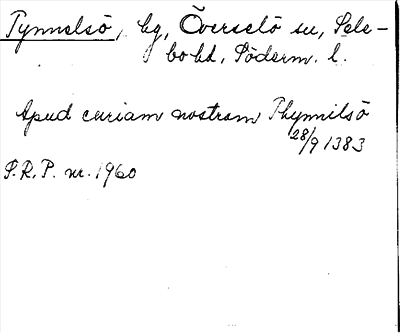 Tynnelsö, hg, Överselö sn, Sele-
bo hd, Söderm. l.
Apud curiam nostram Thynnilsö
28/9 1383
S.R.P. nr. 1960